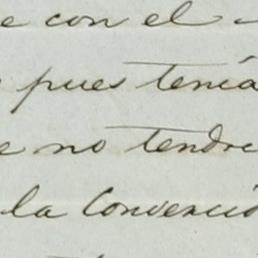 e con el
pues tenía
e no tendre
la Convenció